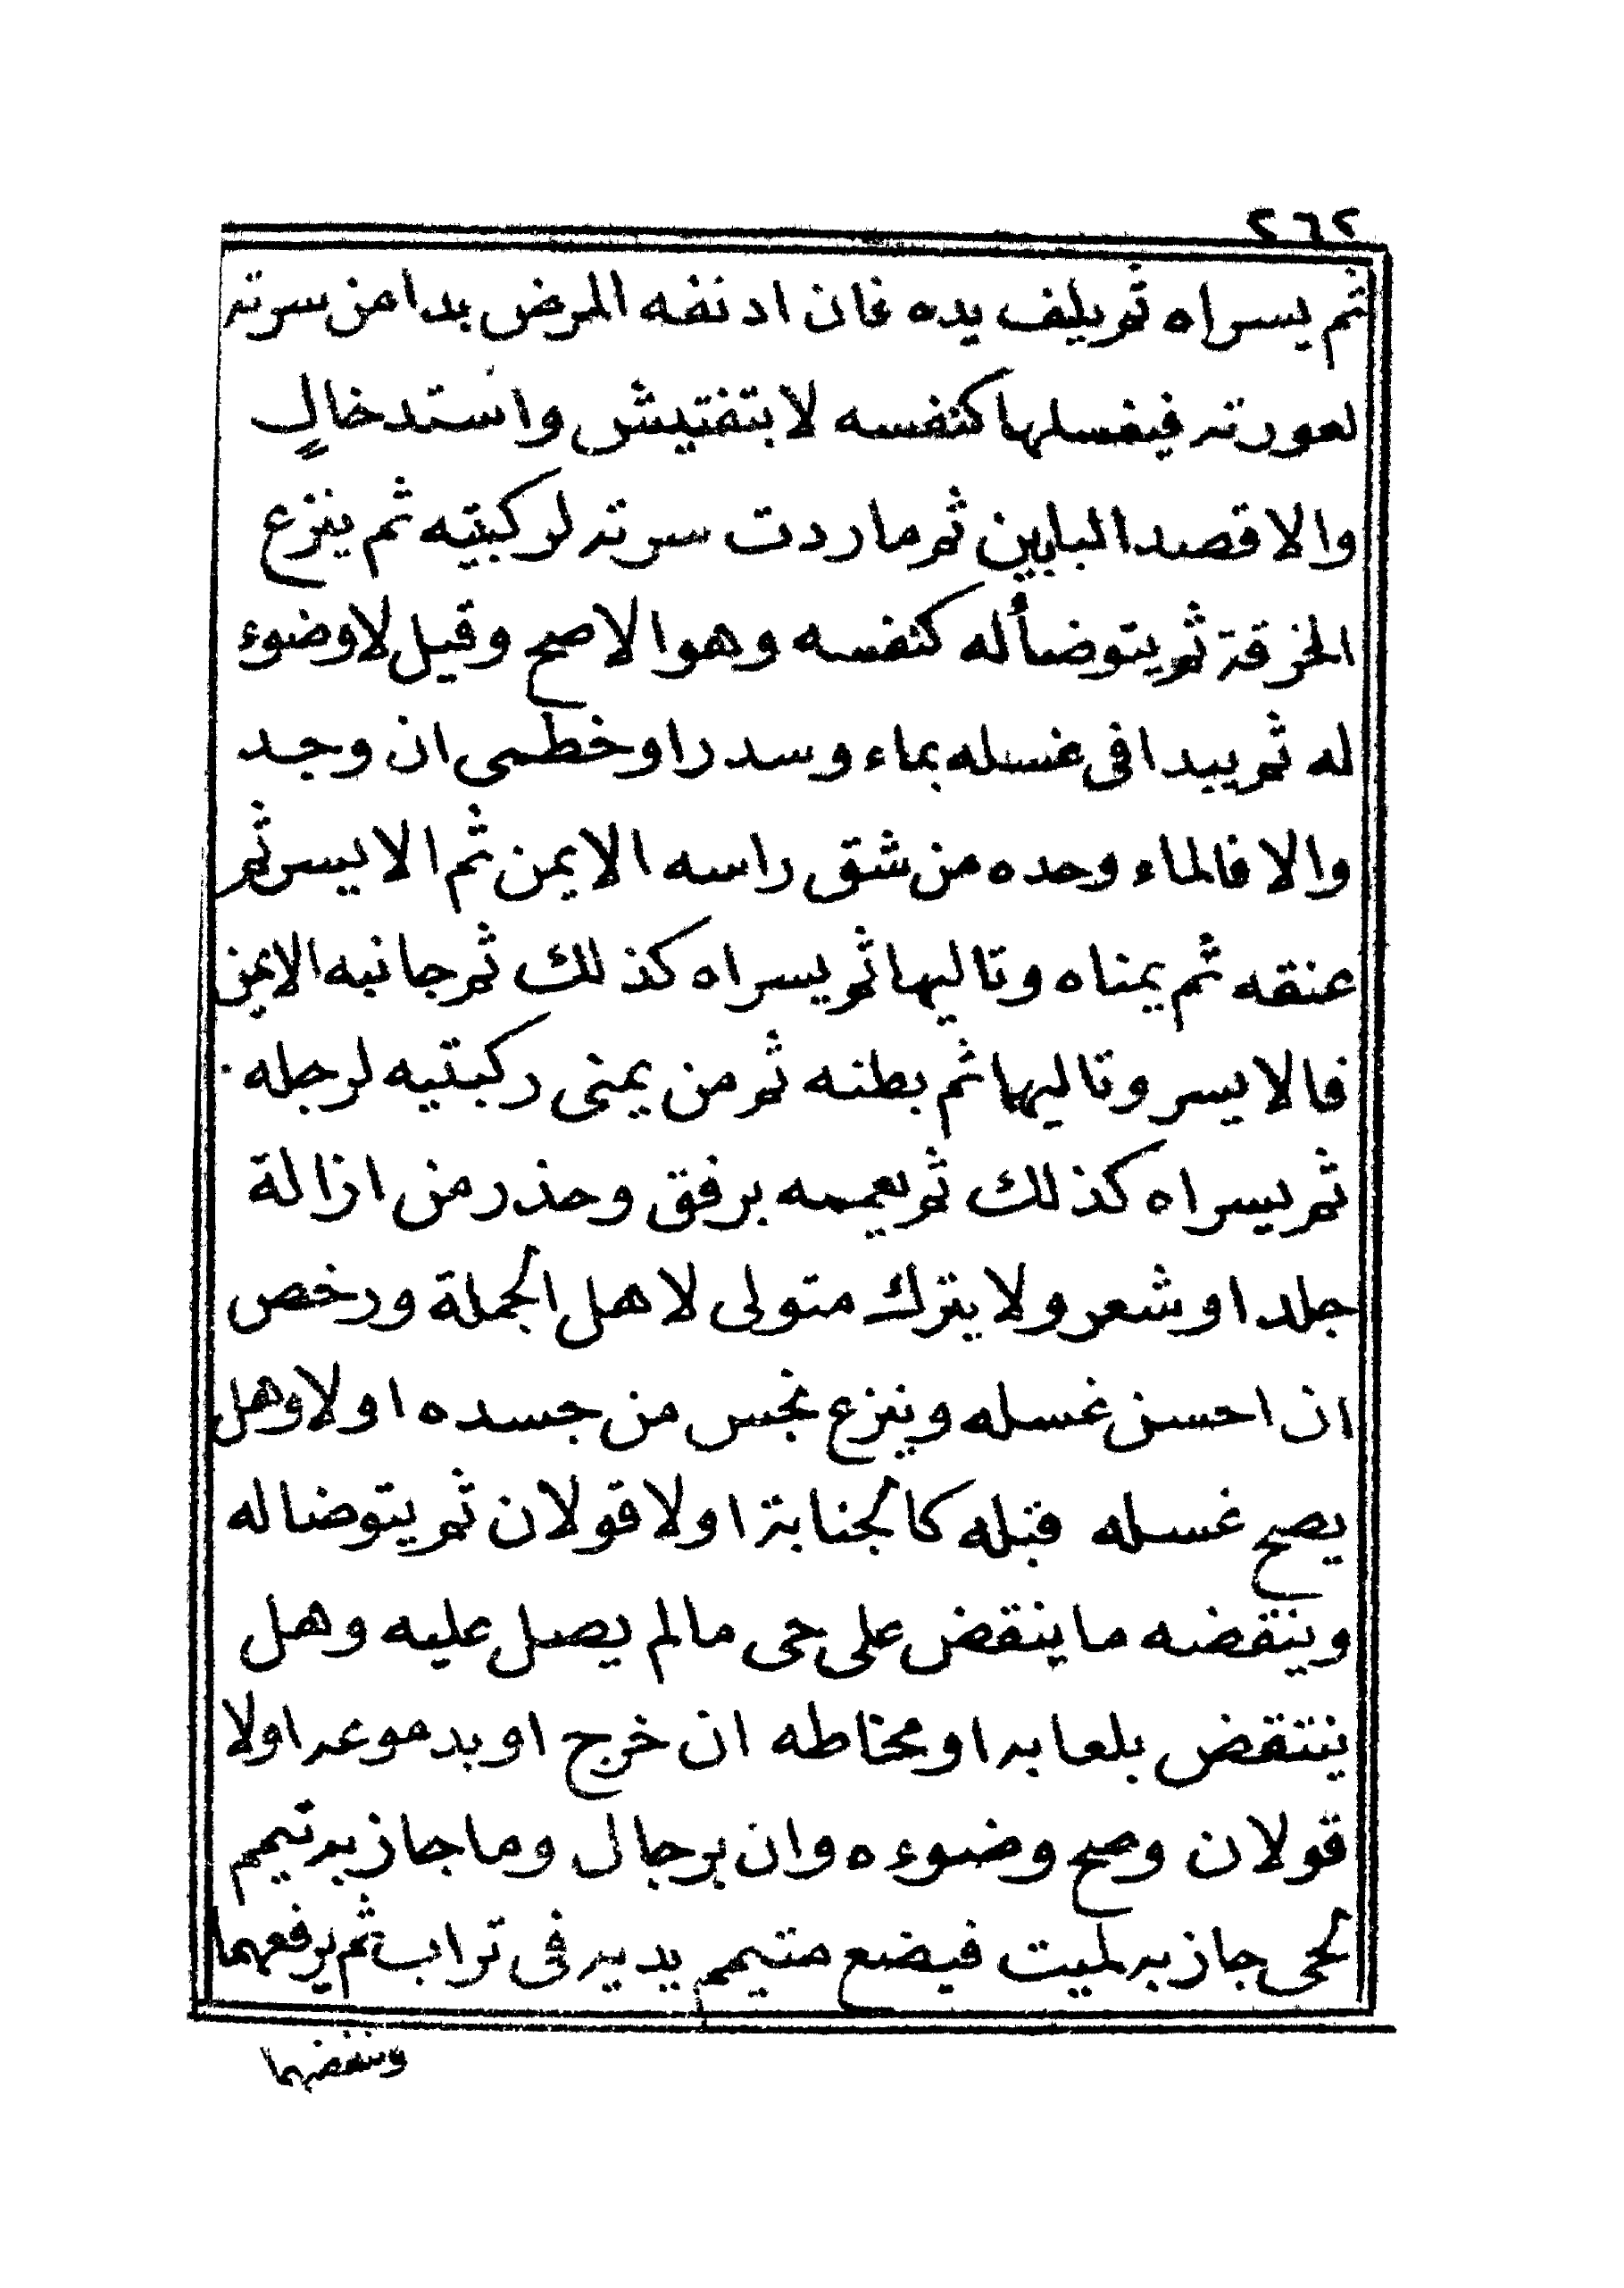 ٢٦٢
ثم يسراه ثم يلف يده فان ادنفه المرض بدا من سرته
لعورته فيغسلها كنفسه لا بتفتيش واستدخال
والا قصد البابين ثم ما ردت سرته لركبتيه ثم ينزع
الخرقة ثم يتوضأ له كنفسه وهو الاصح وقيل لا وضوء
له ثم يبدا فى غسله بماء وسدر او خطمى ان وجد
والا فالماء وحده من شق راسه الايمن ثم الايسر ثم
عنقه ثم يمناه وتاليها ثم يسراه كذلك ثم جانبه الايمن
فالايسر وتاليهما ثم بطنه ثم من يمنى ركبتيه لرجله
ثم يسراه كذلك ثم يعممه برفق وحذر من ازالة
جلد او شعر ولا يترك متولى لاهل الجملة ورخص
ان احسن غسله وينزع نجس من جسده اولا وهل
يصح غسله قبله كالجنابة اولا قولان ثم يتوضا له
وينقضه ما ينقض على حى مالم يصل عليه وهل
ينتقض بلعابه او مخاطه ان خرج او بدموعه اولا
قولان وصح وضوءه وان برجال وما جاز به تيمم
لحى جاز به لميت فيضع متيمم يديه فى تراب ثم يرفعهما
وينفضهما